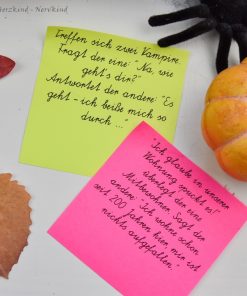 Herzkind - Nervkind
Treffen sich zwei Vampire.
Fragt der eine: "Na, wie
geht's dir?"
Antwortet der andere: "Es
geht - ich beiße mich so
durch ..."
"Ich glaube in unserer
Wohnung spukt's!"
überlegt der eine
Mitbewohner. Sagt der
andere: "Ich wohne schon
seit 200 Jahren hier, mir ist
nichts aufgefallen."